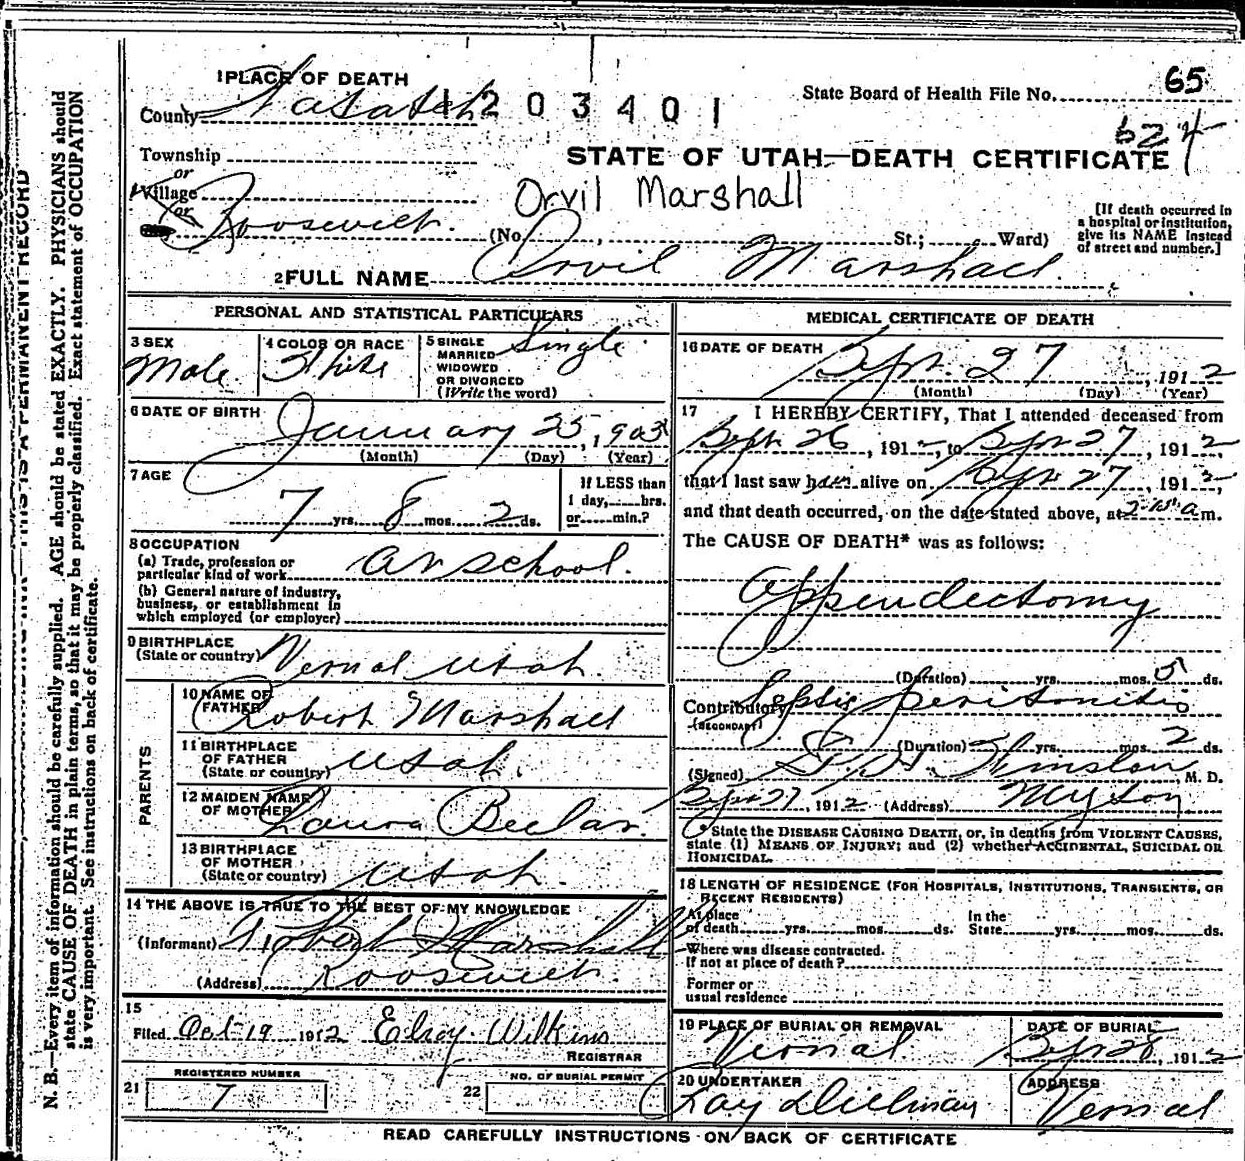 1 PLACE OF DEATH
County Wasatch
1203401
State Board of Health File No. 65
624
Township
or
Village
or
Roosevelt.
STATE OF UTAH—DEATH CERTIFICATE
Orvil Marshall
(No. , St.; Ward)
[If death occurred in a hospital or institution, give its NAME instead of street and number.]
2 FULL NAME Orvil Marshall.
PERSONAL AND STATISTICAL PARTICULARS
3 SEX Male
4 COLOR OR RACE White
5 SINGLE MARRIED WIDOWED OR DIVORCED (Write the word) Single.
6 DATE OF BIRTH January 25, 1905
(Month) (Day) (Year)
7 AGE
7 yrs. 8 mos. 2 ds.
If LESS than 1 day, hrs. or min.?
8 OCCUPATION
(a) Trade, profession or particular kind of work at school.
(b) General nature of industry, business, or establishment in which employed (or employer)
9 BIRTHPLACE (State or country) Vernal Utah.
PARENTS
10 NAME OF FATHER Robert Marshall
11 BIRTHPLACE OF FATHER (State or country) Utah.
12 MAIDEN NAME OF MOTHER Laura
13 BIRTHPLACE OF MOTHER (State or country) Utah.
14 THE ABOVE IS TRUE TO THE BEST OF MY KNOWLEDGE
(Informant) Robert Marshall
(Address) Roosevelt
15
Filed Oct 19 1912 Elroy Wilkins
REGISTRAR
21 REGISTERED NUMBER 7
22 NO. OF BURIAL PERMIT
MEDICAL CERTIFICATE OF DEATH
16 DATE OF DEATH Sept. 27, 1912
(Month) (Day) (Year)
17 I HEREBY CERTIFY, That I attended deceased from
Sept 26, 1912, to Sept 27, 1912,
that I last saw him alive on Sept 27, 1912,
and that death occurred, on the date stated above, at 2 15 a m.
The CAUSE OF DEATH* was as follows:
Appendectomy
(Duration) yrs. mos. 5 ds.
Contributory Septic peritonitis
(SECONDARY)
(Duration) yrs. mos. 2 ds.
(Signed) Winslow M. D.
Sept 27, 1912 (Address) Myton
* State the DISEASE CAUSING DEATH, or, in deaths from VIOLENT CAUSES,
state (1) MEANS OF INJURY; and (2) whether ACCIDENTAL, SUICIDAL OR
HOMICIDAL.
18 LENGTH OF RESIDENCE (FOR HOSPITALS, INSTITUTIONS, TRANSIENTS, OR
RECENT RESIDENTS)
At place of death yrs. mos. ds. In the State yrs. mos. ds.
Where was disease contracted.
If not at place of death?
Former or
usual residence
19 PLACE OF BURIAL OR REMOVAL Vernal
DATE OF BURIAL Sept 28, 1912
20 UNDERTAKER Ray Dillman
ADDRESS Vernal
READ CAREFULLY INSTRUCTIONS ON BACK OF CERTIFICATE
N. B.—Every item of information should be carefully supplied. AGE should be stated EXACTLY. PHYSICIANS should
state CAUSE OF DEATH in plain terms, so that it may be properly classified. Exact statement of OCCUPATION
is very important. See instructions on back of certificate.
THIS IS A PERMANENT RECORD